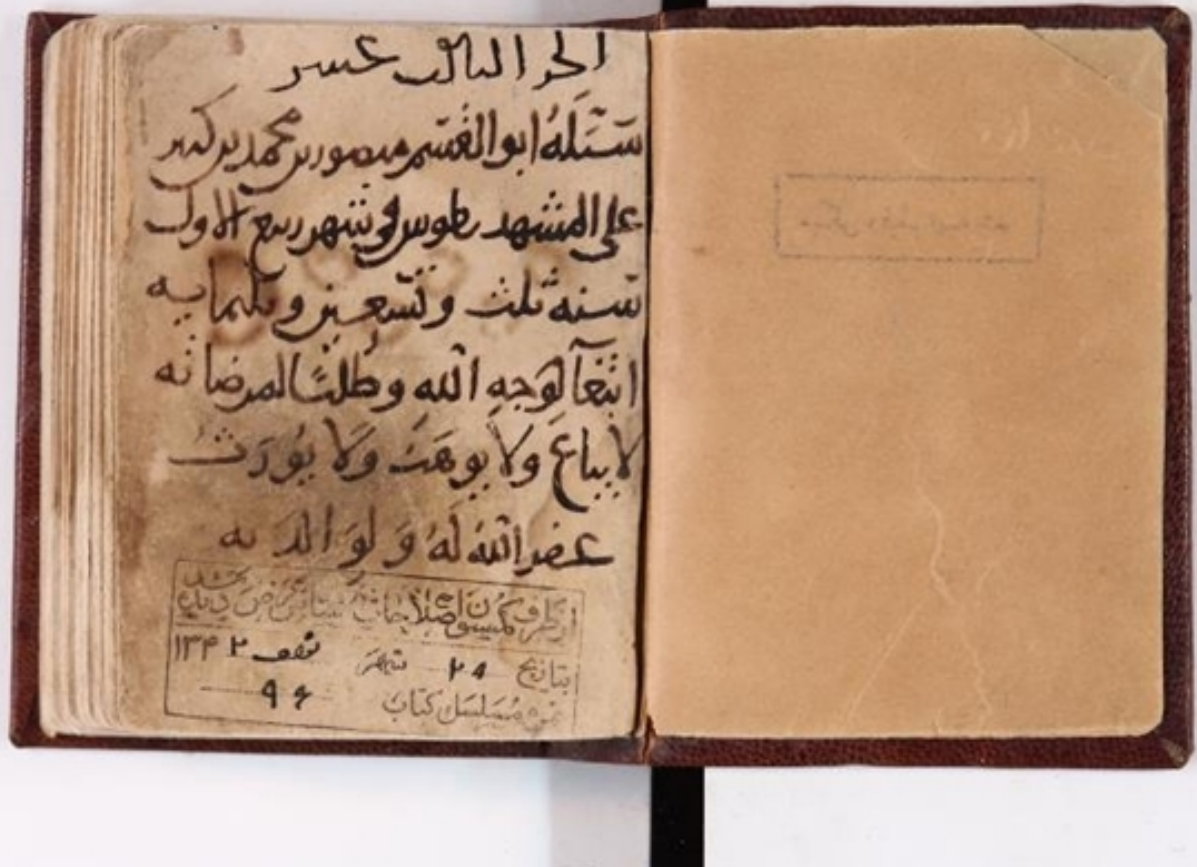 الجز الثالث عشر
سَبَّلَهُ ابو القسم منصور بن محمد بن كثير
على المشهد بطوس في شهر ربيع الاول
سنه ثلث وتسعين وثلثمايه
ابتغآ لوجه الله وطلبًا لمرضاته
لا يباع ولا يوهب ولا يورث
غفر الله له ولوالديه
از طرف کمیسیون اصلاحات آستانه عرض دیده شد
بتاریخ ۲۹ شهر صفر ۱۳۴۲
نمره مسلسل کتاب ۹۶